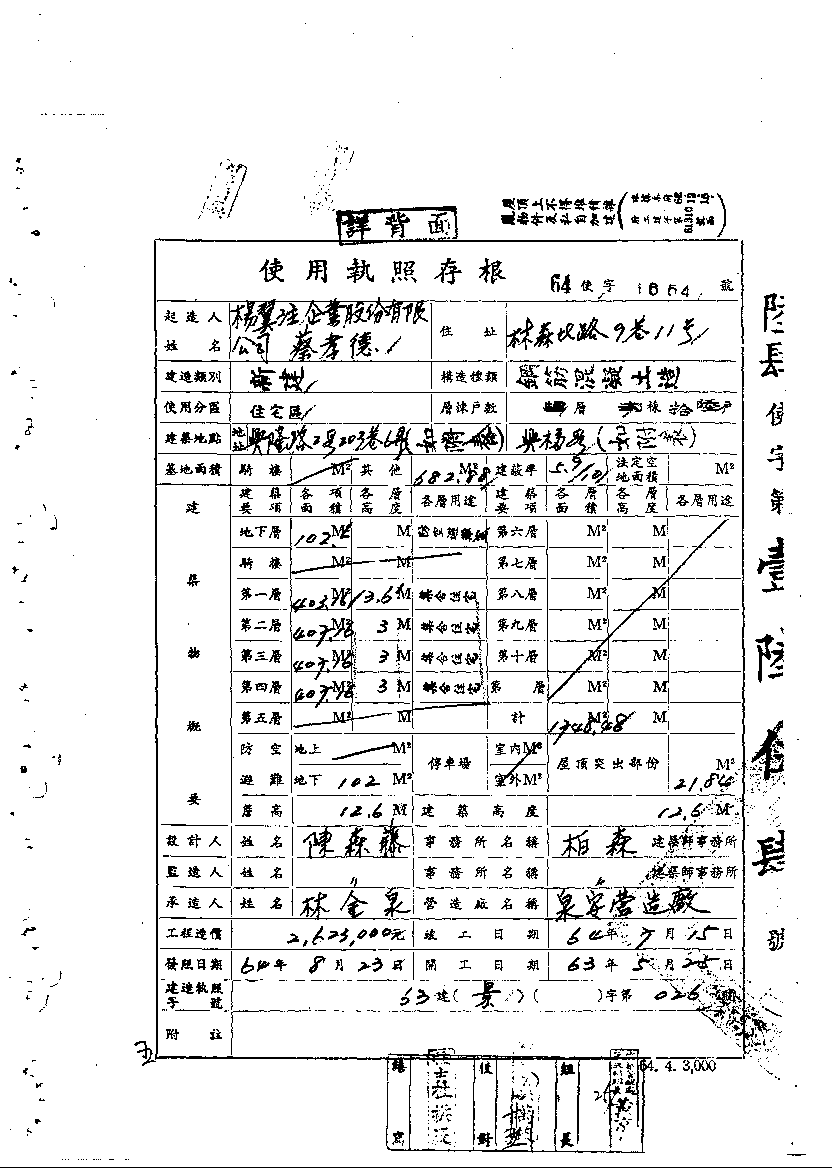 詳背面
屋頂上不得堆積雜
物件及私自加建
使用執照存根
64使字1664號
起造人姓名 楊翼注企業股份有限公司 蔡孝德 住址 林森北路9巷11号
建造類別 新建 構造種類 鋼筋混凝土造
使用分區 住宅區 層棟戶數 層 棟 拾陸戶
建築地點 地址 興隆路2号203巷6弄
基地面積 騎樓 M² 其他 682.88 M² 建蔽率 5.9/10 法定空地面積 M²
建築物概要
建築要項 各項面積 各層高度 各層用途 建築要項 各層面積 各層高度 各層用途
地下層 102 M² M 第六層 M² M
騎樓 M² M 第七層 M² M
第一層 403.76 M² 3.6 M 集合住宅 第八層 M² M
第二層 407.76 M² 3 M 集合住宅 第九層 M² M
第三層 407.76 M² 3 M 集合住宅 第十層 M² M
第四層 407.76 M² 3 M 集合住宅 第 層 M² M
第五層 M² M 計 1748.48 M² M
防空避難 地上 M² 停車場 室內M² 屋頂突出部份 M²
地下 102 M² 室外M² 21.84
簷高 12.6 M 建築高度 12.6 M
設計人 姓名 陳森藤 事務所名稱 柏森 建築師事務所
監造人 姓名 〃 事務所名稱 〃 建築師事務所
承造人 姓名 林金泉 營造廠名稱 泉安營造廠
工程造價 2,623,000元 竣工日期 64年7月15日
發照日期 64年8月23日 開工日期 63年5月25日
建造執照字號 63建(景)( )字第026號
附註
64. 4. 3,000
繕寫 校對 組長
陸肆使字第壹陸伍肆號